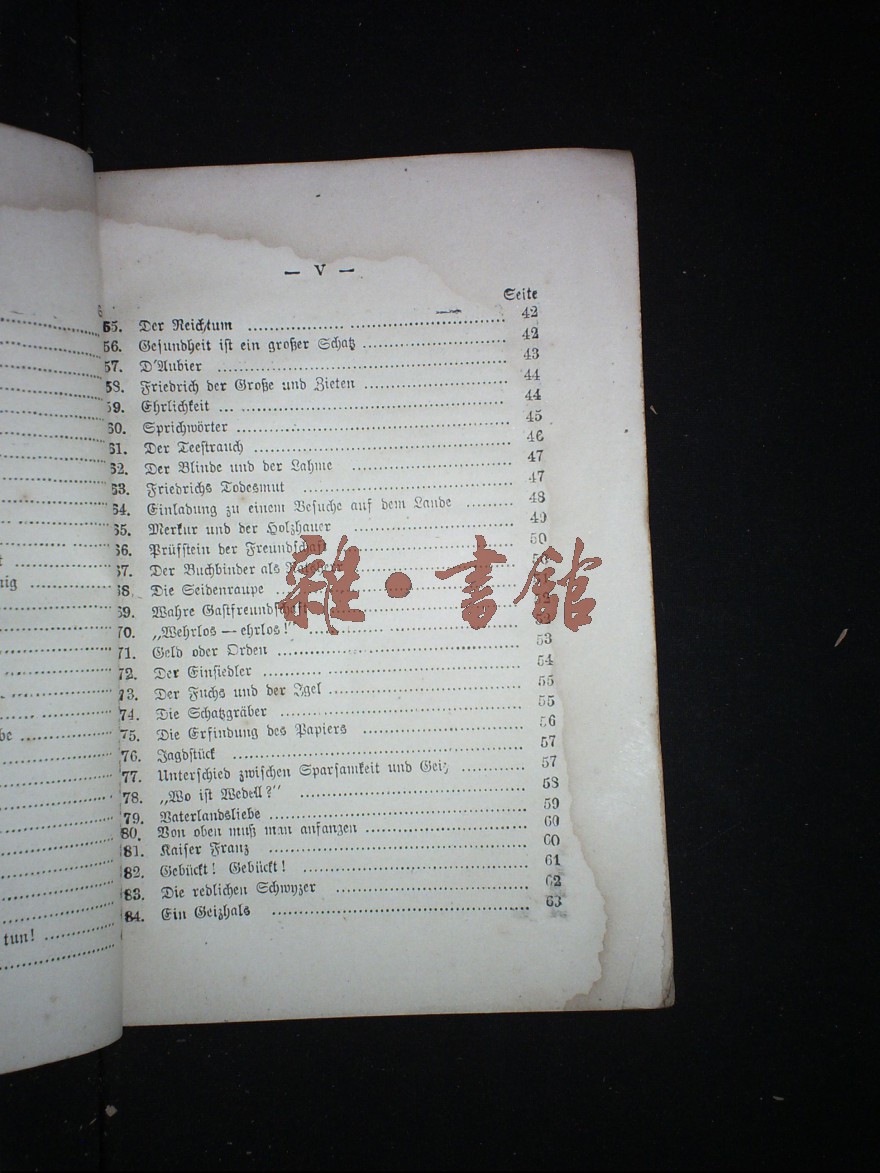 — V —
Seite
55. Der Reichtum .......... 42
56. Gesundheit ist ein großer Schatz .......... 42
57. D'Aubier .......... 43
58. Friedrich der Große und Zieten .......... 44
59. Ehrlichkeit .......... 44
60. Sprichwörter .......... 45
61. Der Teestrauch .......... 46
62. Der Blinde und der Lahme .......... 47
63. Friedrichs Todesmut .......... 47
64. Einladung zu einem Besuche auf dem Lande .......... 48
65. Merkur und der Holzhauer .......... 49
66. Prüfstein der Freundschaft .......... 50
67. Der Buchbinder als
68. Die Seidenraupe
69. Wahre Gastfreundschaft
70. „Wehrlos — ehrlos!"
71. Geld oder Orden .......... 53
72. Der Einsiedler .......... 54
73. Der Fuchs und der Igel .......... 55
74. Die Schatzgräber .......... 55
75. Die Erfindung des Papiers .......... 56
76. Jagdstück .......... 57
77. Unterschied zwischen Sparsamkeit und Geiz .......... 57
78. „Wo ist Wedell?" .......... 58
79. Vaterlandsliebe .......... 59
80. Von oben muß man anfangen .......... 60
81. Kaiser Franz .......... 60
82. Gebückt! Gebückt! .......... 61
83. Die redlichen Schwyzer .......... 62
84. Ein Geizhals .......... 63
tun!
雜·書館